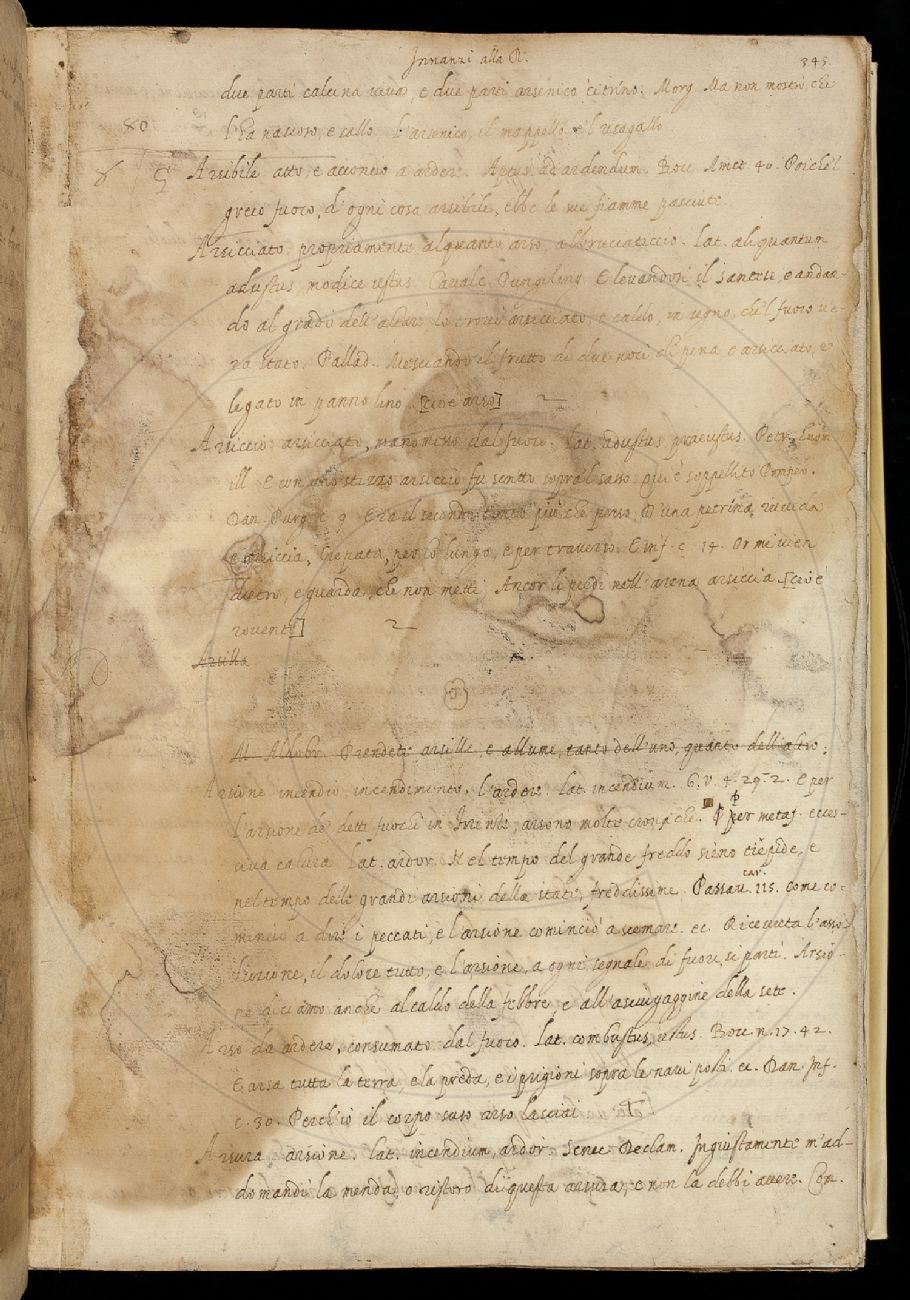 Innanzi alla R. 345.
due parti calcina viva, e due parti arsenico citrino. Morg. Ma non mostrò, che
80 l'ha nascoso, e callo. L'arsenico, il mappello, e 'l risagallo
Arsibile atto, e acconcio a ardere. Aptus ad ardendum. Bocc. Amet. 40. Poichè 'l
greco fuoco, d'ogni cosa arsibile, ebbe le sue fiamme pasciute.
Arsicciato propriamente alquanto arso, abbruciaticcio. Lat. aliquantum
adustus, modice ustus. Cavalc. Pungiling. E levandosi il e andan-
do al grado dell'altare, lo trovò arsicciato, e caldo, in segno, che 'l fuoco v'e-
ra stato. Pallad. Mesciando il frutto di due noci di pina e arsicciato, e
legato in panno lino. [cioè arso]
Arsiccio arsicciato, manomesso dal fuoco. Lat. adustus, praeustus. Petr. huom.
ill. E con uno stizzo arsiccio fu scritto sopra 'l sasso. Qui è soppellito Pompeo.
Dan. Purg. c. 9. Era il secondo tinto più che perso, D'una petrina ruvida
e arsiccia, Crepata, per lo lungo, e per traverso. E inf. c. 14. Or mi vien
dietro, e guarda, che non metti Ancor li piedi nell'arena arsiccia [cioè
rovente]
Arsilla
M. Aldobr. Prendete arsille, e allume, tanto dell'uno, quanto dell'altro.
Arsione incendio, incendimento, l'ardere. Lat. incendium. G. V. 4. 29. 2. E per
l'arsione de' detti fuochi in Firenze, arsono molte croniche. P per metaf. ecces-
siva calura. Lat. ardor. Nel tempo del grande freddo sieno tiepide, e
nel tempo delle grandi arsioni della state, freddissime. Passav. car. 115. Come co-
minciò a dire i peccati, e l'arsione cominciò a scemare. ec. Ricevuta l'asso-
luzione, il dolore tutto, e l'arsione, a ogni segnale di fuori, si partì. Arsio-
ne diciamo anche al caldo della febbre, e all'asciugaggine della sete.
Arso da ardere, consumato dal fuoco. Lat. combustus, ustus. Bocc. n. 17. 42.
E arsa tutta la terra, e la preda, e i prigioni sopra le navi posti. ec. Dan. Inf.
c. 30. Perch'io il corpo suso arso lasciai
Arsura arsione. Lat. incendium, ardor. Senec. Declam. Ingiustamente m'ad-
domandi la menda, o ristoro di questa arsura, e non la debbi avere. Con.